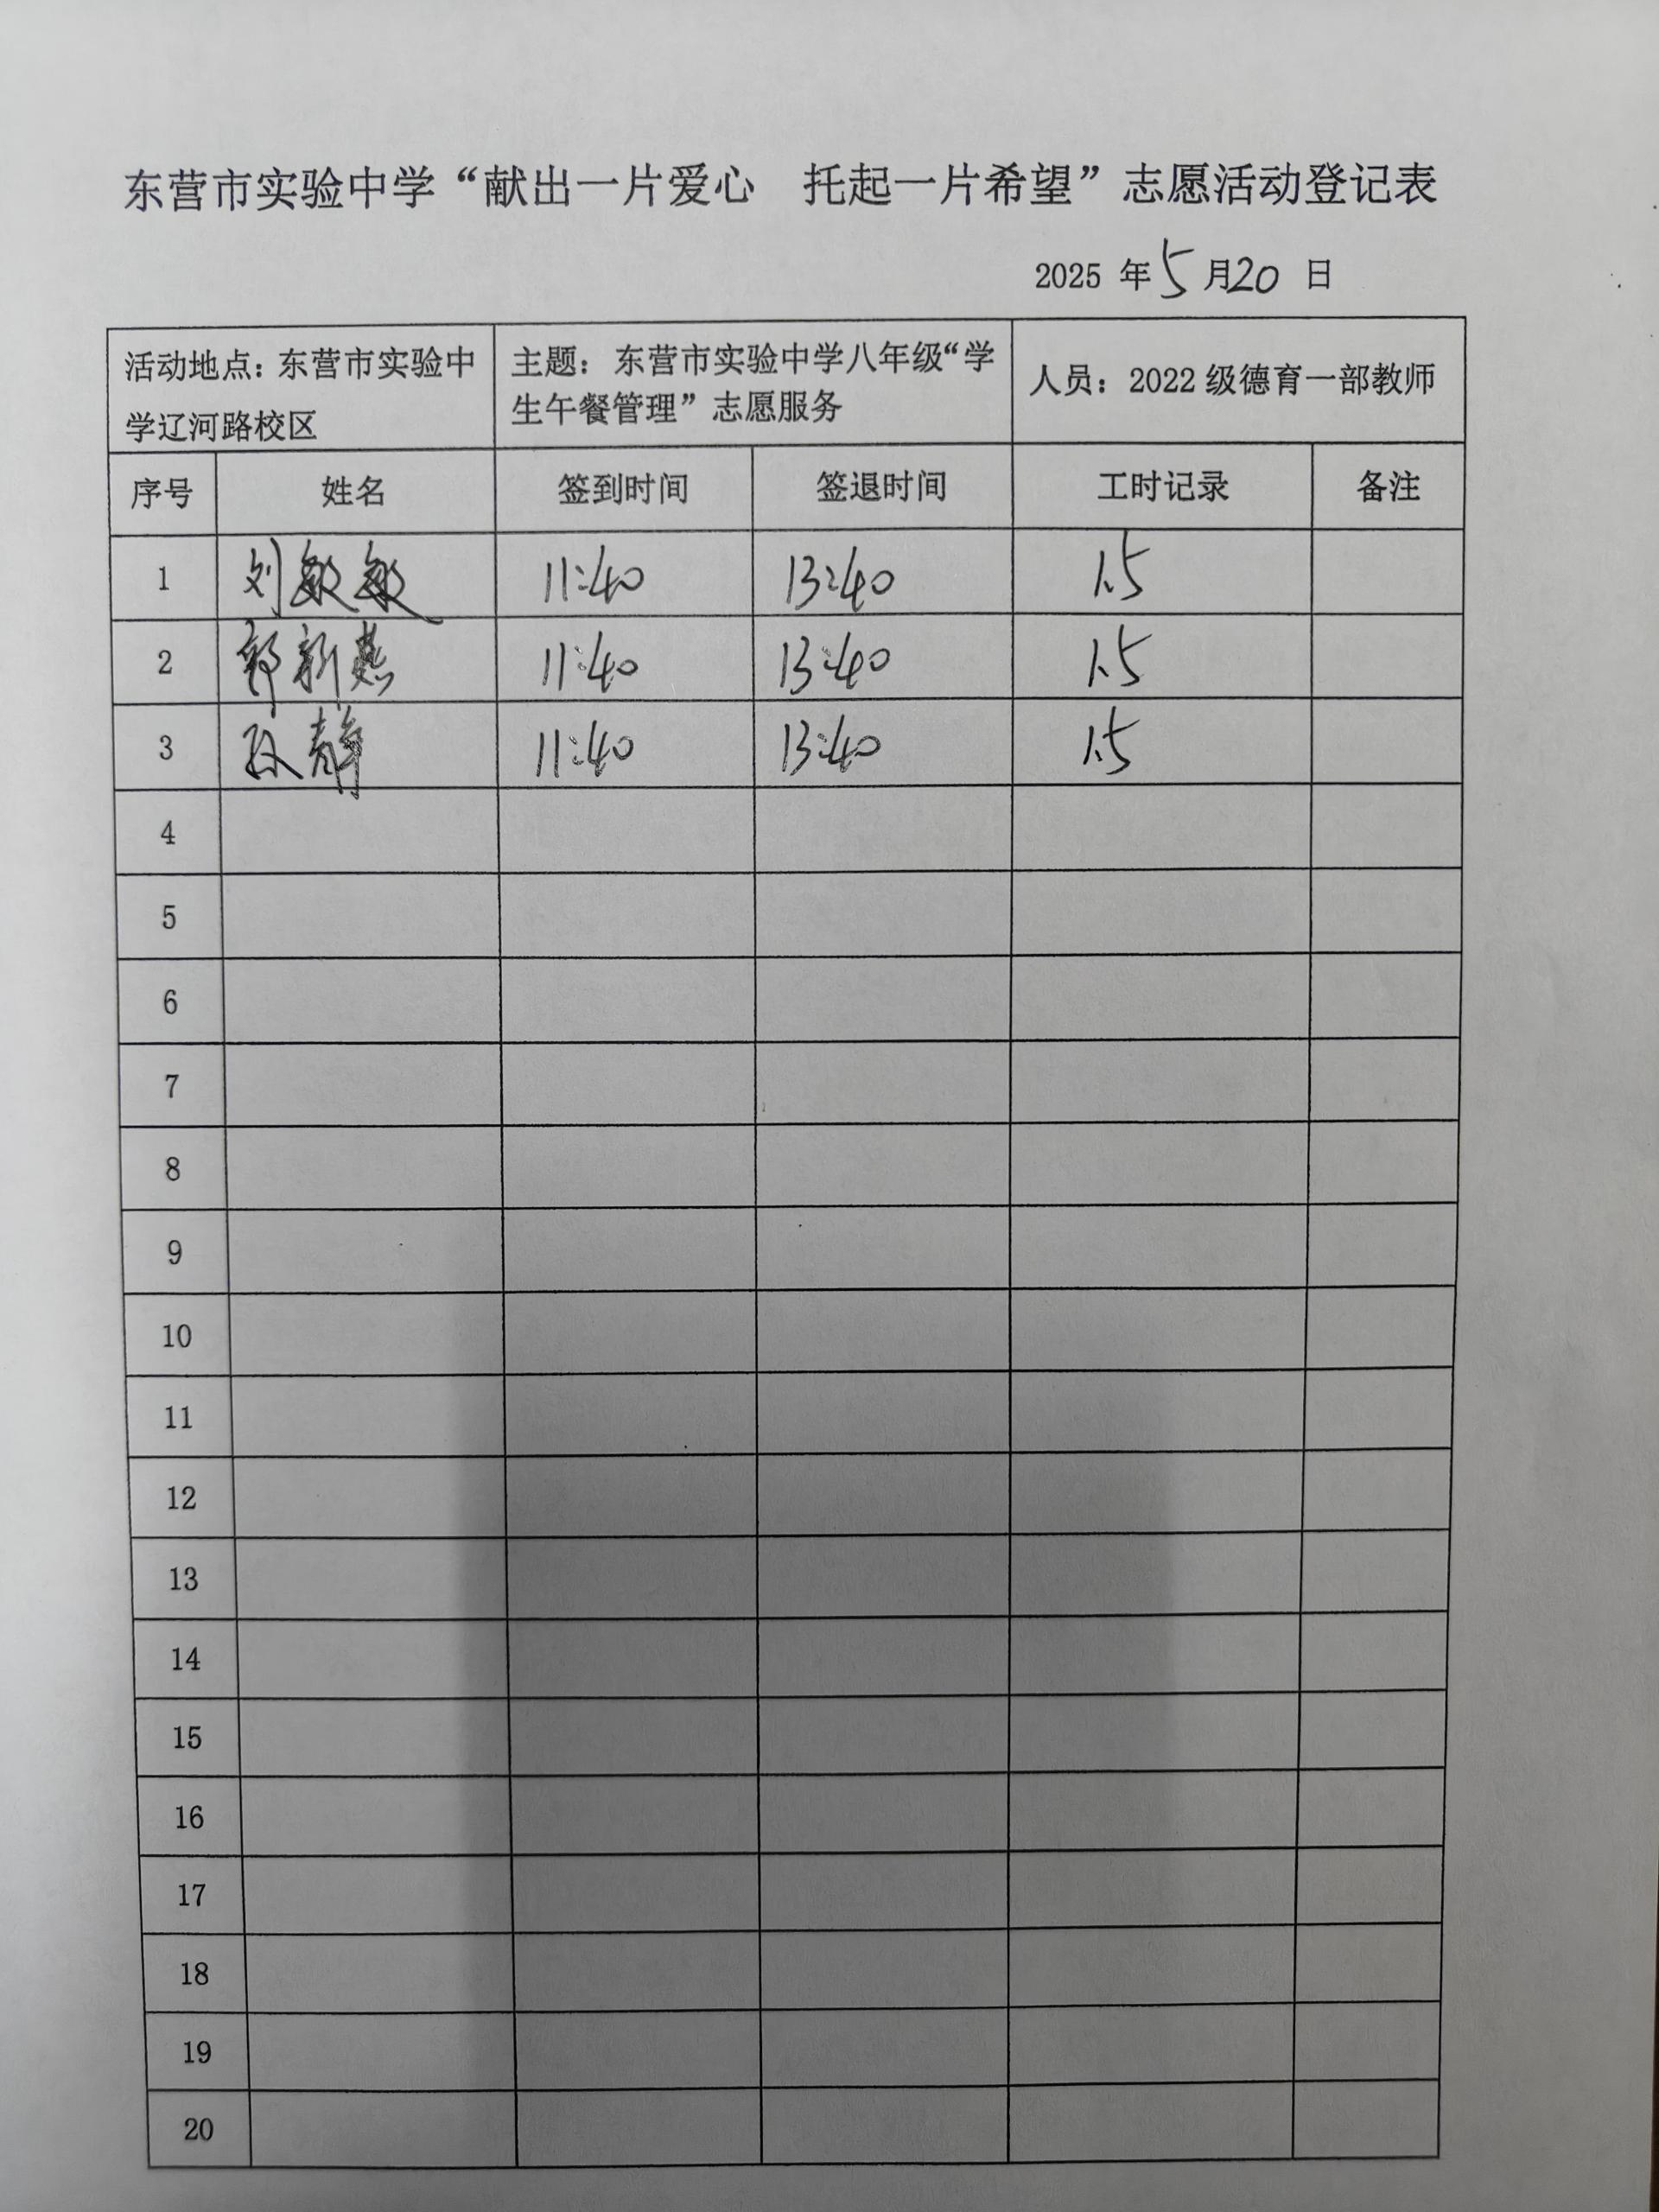 东营市实验中学“献出一片爱心 托起一片希望”志愿活动登记表
2025 年 5 月 20 日
活动地点：东营市实验中
学辽河路校区
主题： 东营市实验中学八年级“学
生午餐管理”志愿服务
人员：2022 级德育一部教师
序号 姓名 签到时间 签退时间 工时记录 备注
1 刘敏敏 11:40 13:40 1.5
2 郭新燕 11:40 13:40 1.5
3 孙静 11:40 13:40 1.5
4
5
6
7
8
9
10
11
12
13
14
15
16
17
18
19
20